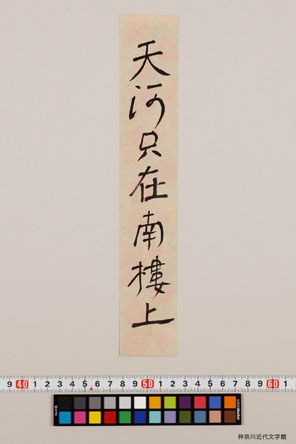 天河只在南樓上
9 40 1 2 3 4 5 6 7 8 9 50 1 2 3 4 5 6 7 8 9 60 1
神奈川近代文学館